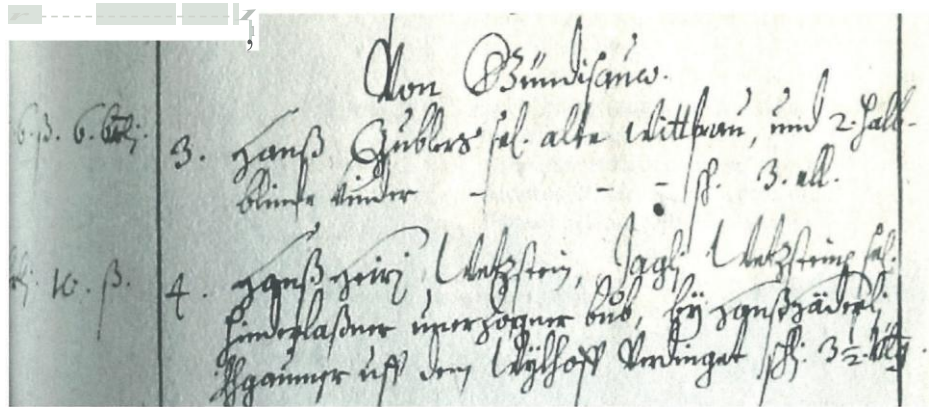 Von Gündisauw.
6 ß. 6. btzj.
3. Hanß Gublers sel. alte Wittfrau, und 2. halb-
blinde kinder - - - ß. 3. ell.
10. ß.
4. Hanß Heirj Wetzstein, Jagli Wetzsteins sel.
hinderlaßner unerzogner bub, by Hanß
uff dem Wylhoff verdinget 3½.